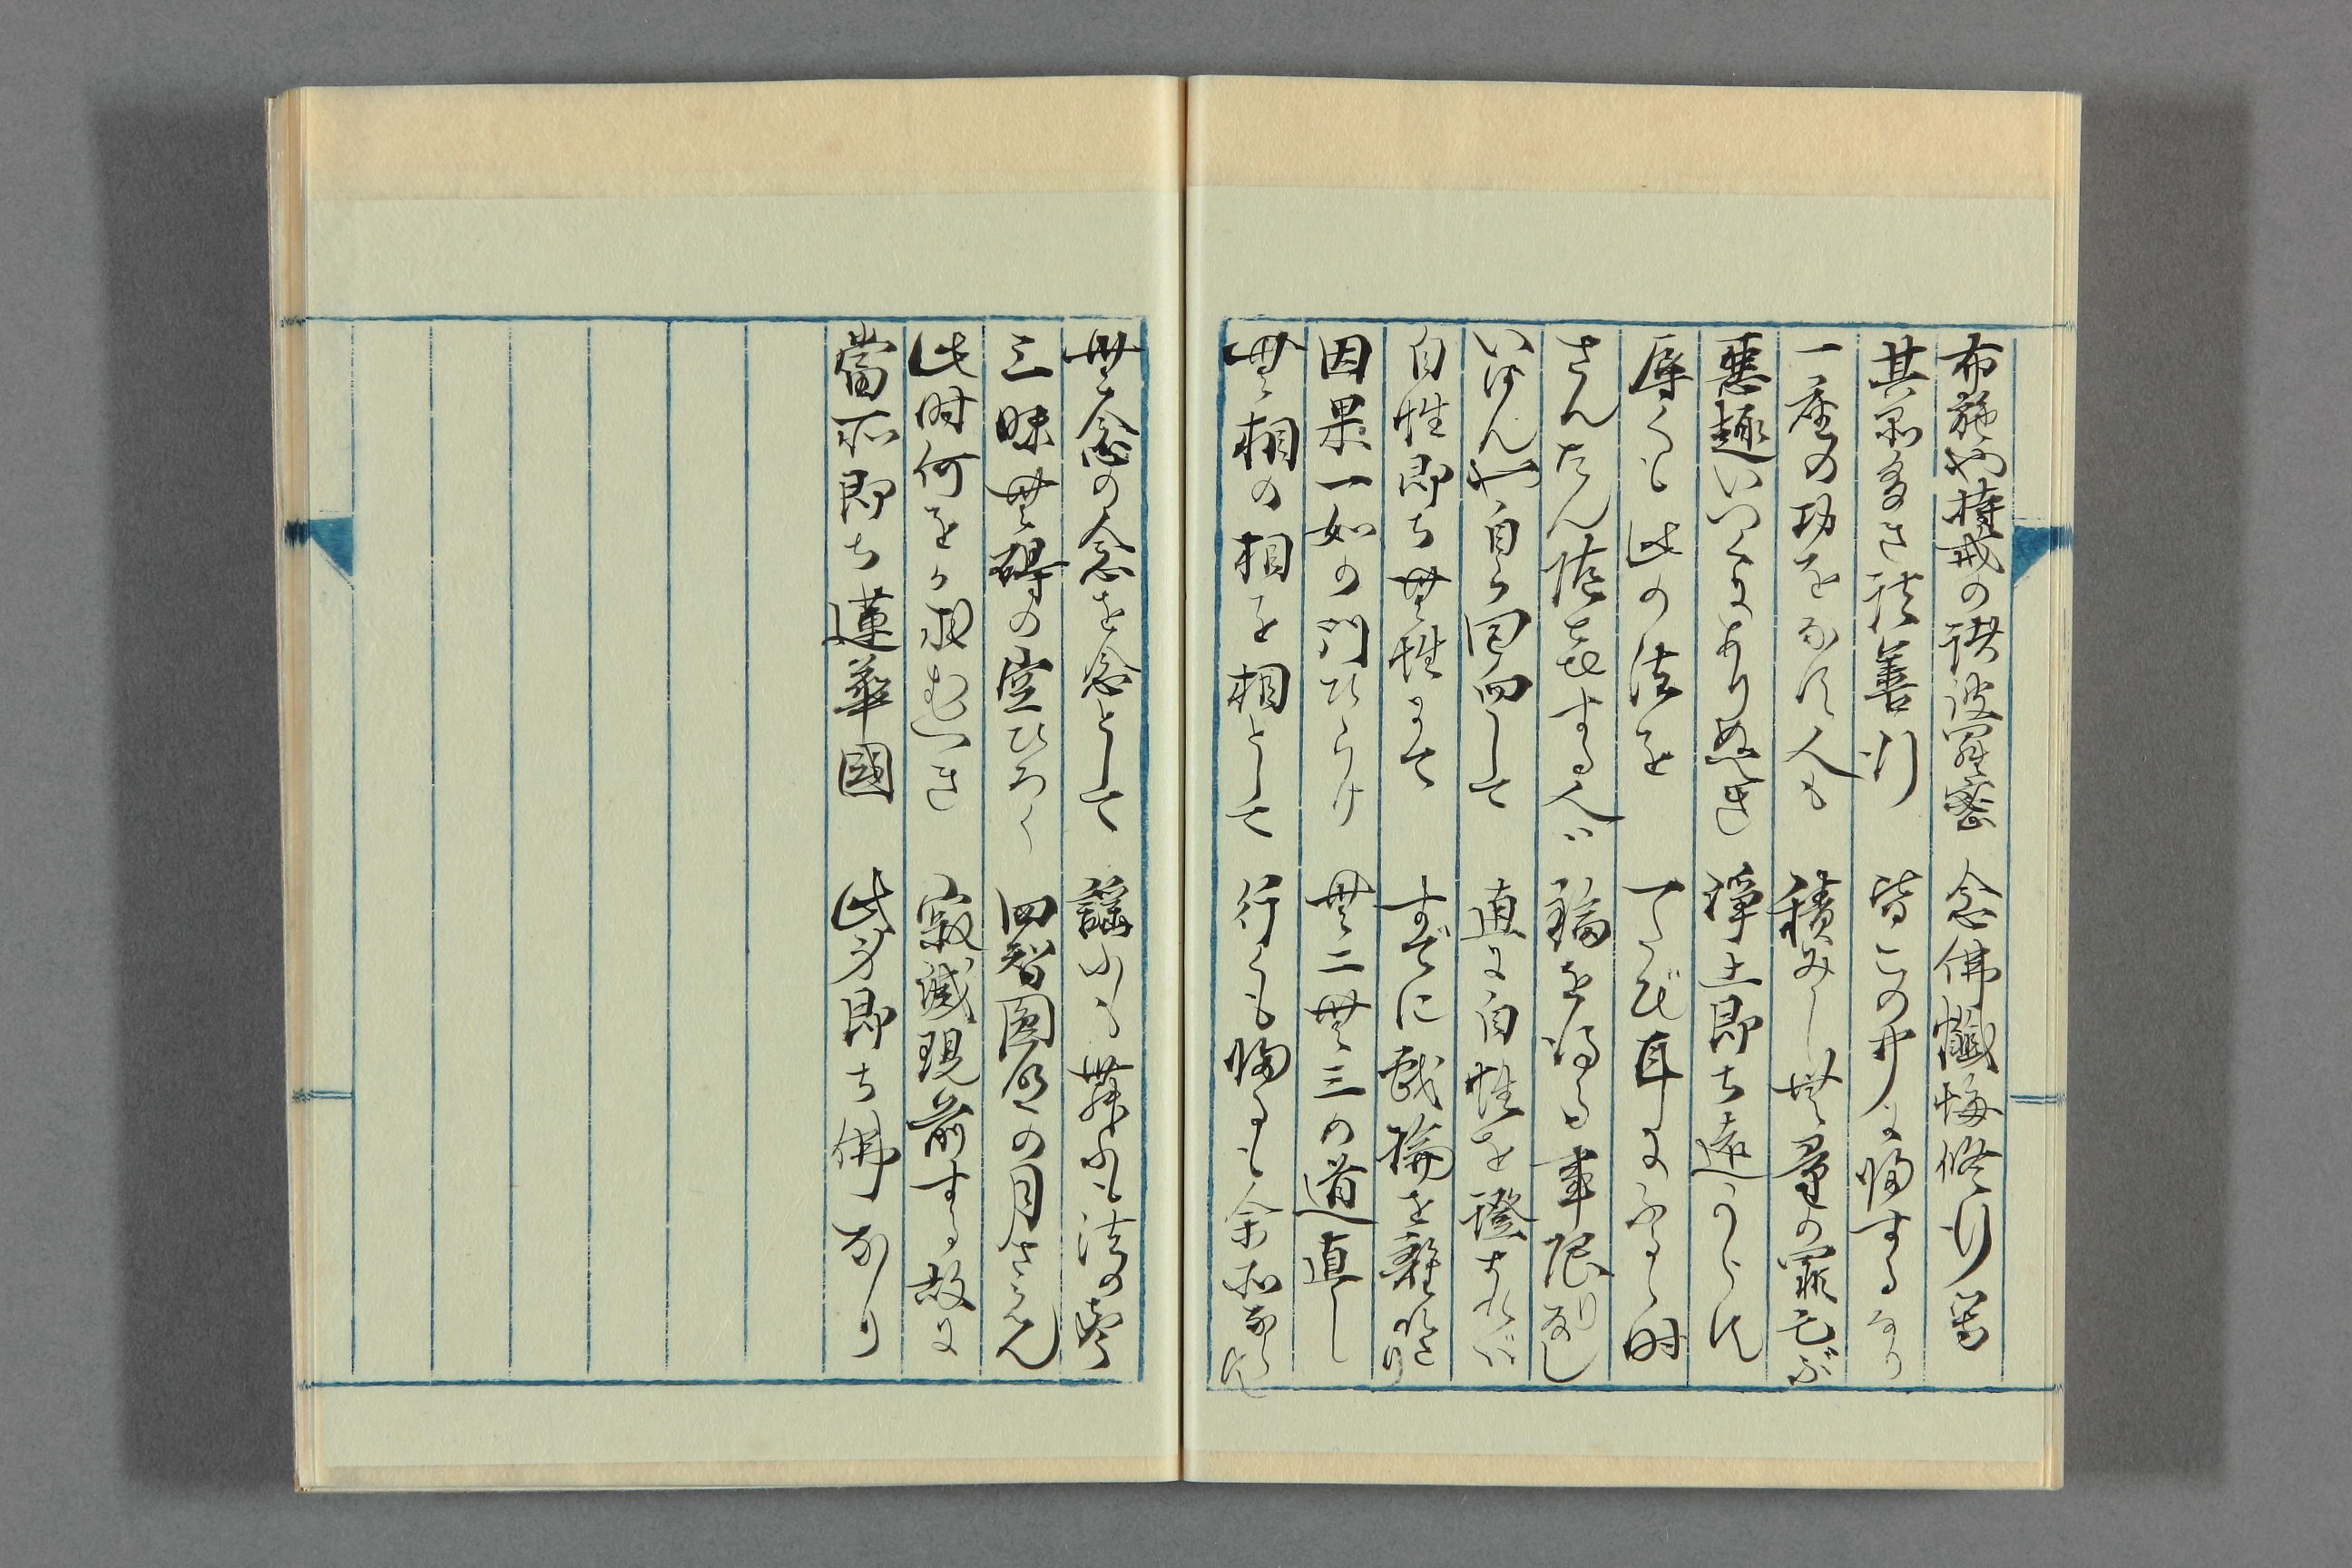 布施や持戒の諸波羅密　念佛懺悔修行等
其品多き諸善行　皆この中に帰するなり
一座の功をなす人も　積みし無量の罪亡ぶ
悪趣いづくにありぬべき　浄土即ち遠からず
辱くも此の法を　一たび耳にふるゝ時
さんたん随喜する人は　福を得る事限りなし
いはんや自ら回向して　直に自性を證すれば
自性即ち無性にて　すでに戯論を離れたり
因果一如の門ひらけ　無二無三の道直し
無相の相を相として　行くも帰るも余所ならず
無念の念を念として　謡ふも舞ふも法の声
三昧無碍の空ひろく　四智圓明の月さえん
此時何をか求むべき　寂滅現前する故に
當所即ち蓮華國　此身即ち佛なり